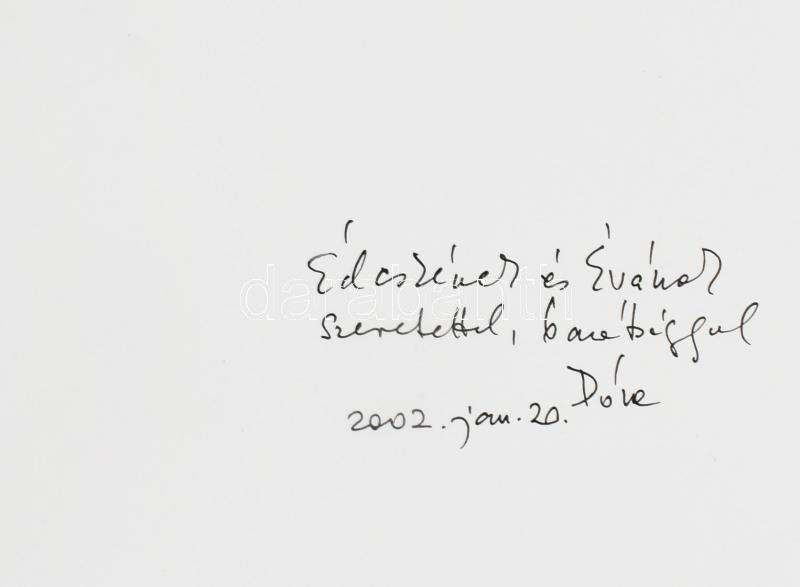 és Évának
szeretettel, barátsággal
Dóra
2002. jan. 20.
darabanth